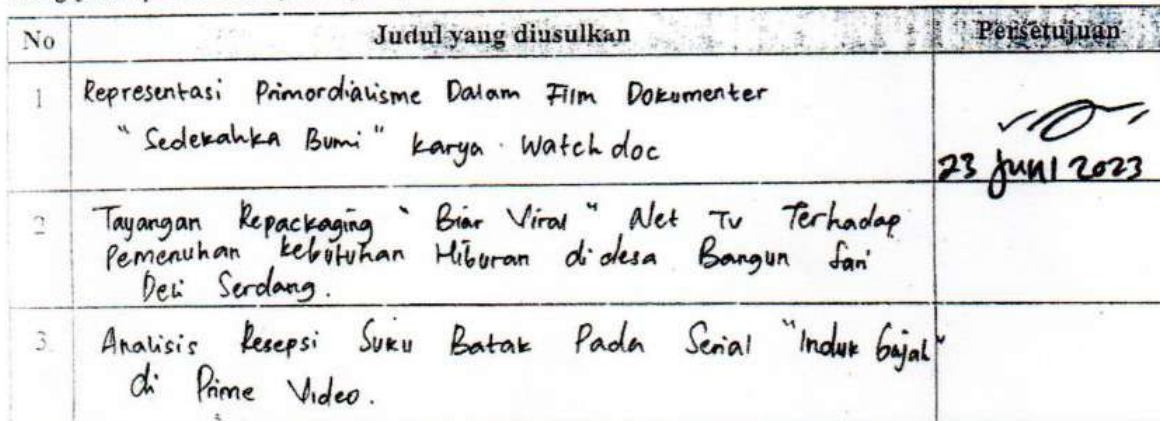 No Judul yang diusulkan Persetujuan
1 Representasi Primordialisme Dalam Film Dokumenter
"Sedekahka Bumi" karya Watch doc
23 Juni 2023
2 Tayangan Repackaging "Biar Viral" Net TV Terhadap
Pemenuhan kebutuhan Hiburan di desa Bangun Sari
Deli Serdang.
3. Analisis Resepsi Suku Batak Pada Serial "Induk Gajah"
di Prime Video.